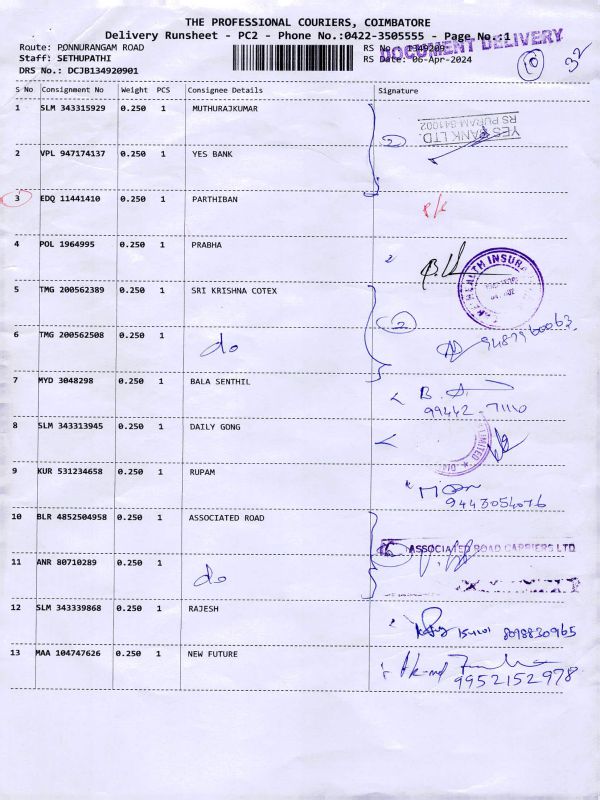 THE PROFESSIONAL COURIERS, COIMBATORE
Delivery Runsheet - PC2 - Phone No.:0422-3505555 - Page No.:1
Route: PONNURANGAM ROAD
RS No. 1349209
DOCUMENT DELIVERY
Staff: SETHUPATHI
RS Date: 06-Apr-2024
10
32
DRS No.: DCJB134920901
S No Consignment No Weight PCS Consignee Details Signature
1 SLM 343315929 0.250 1 MUTHURAJKUMAR
YES BANK LTD.
RS PURAM-641002
2
2 VPL 947174137 0.250 1 YES BANK
3 EDQ 11441410 0.250 1 PARTHIBAN
4 POL 1964995 0.250 1 PRABHA
HEALTH INSURA
5 TMG 200562389 0.250 1 SRI KRISHNA COTEX
2
6 TMG 200562508 0.250 1 do
9487960063
7 MYD 3048298 0.250 1 BALA SENTHIL
99442-71110
8 SLM 343313945 0.250 1 DAILY GONG
LIMITED
9 KUR 531234658 0.250 1 RUPAM
9443054076
10 BLR 4852504958 0.250 1 ASSOCIATED ROAD
ASSOCIATED ROAD CARRIERS LTD
11 ANR 80710289 0.250 1 do
12 SLM 343339868 0.250 1 RAJESH
8098830965
13 MAA 104747626 0.250 1 NEW FUTURE
9952152978